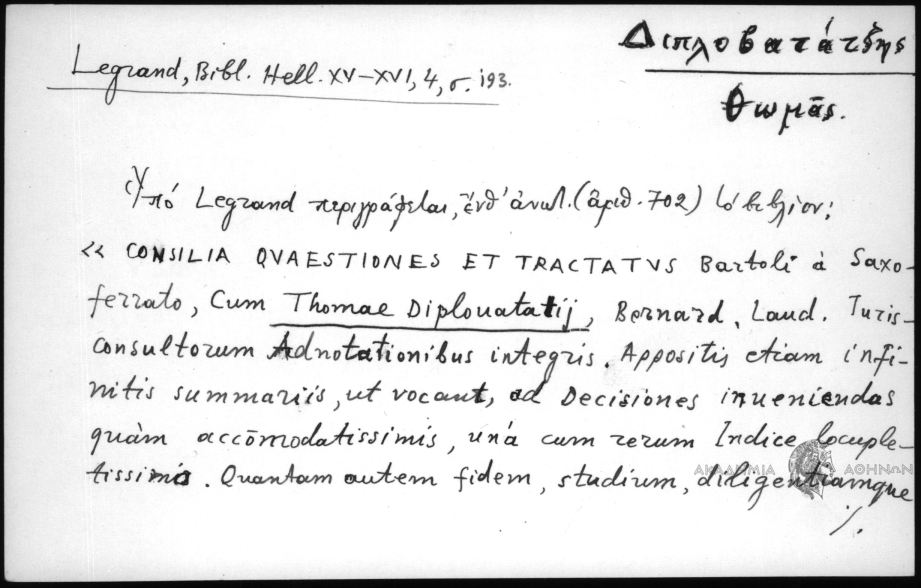 Διπλοβατάτζης
Θωμᾶς.
Legrand, Bibl. Hell. XV–XVI, 4, σ. 193.
Ὑπό Legrand περιγράφεται, ἐνθ' ἀνωτ. (ἀριθ. 702) τό βιβλίον:
« CONSILIA QVAESTIONES ET TRACTATVS Bartoli à Saxo-
ferrato, Cum Thomae Diplouatatij, Bernard, Laud. Turis-
consultorum Adnotationibus integris. Appositis etiam infi-
nitis summariis, ut vocant, ad Decisiones inueniendas
quàm accōmodatissimis, unà cum rerum Indice locuple-
tissimo. Quantam autem fidem, studium, diligentiamque
·/.
ΑΚΑΔΗΜΙΑ ΑΘΗΝΩΝ